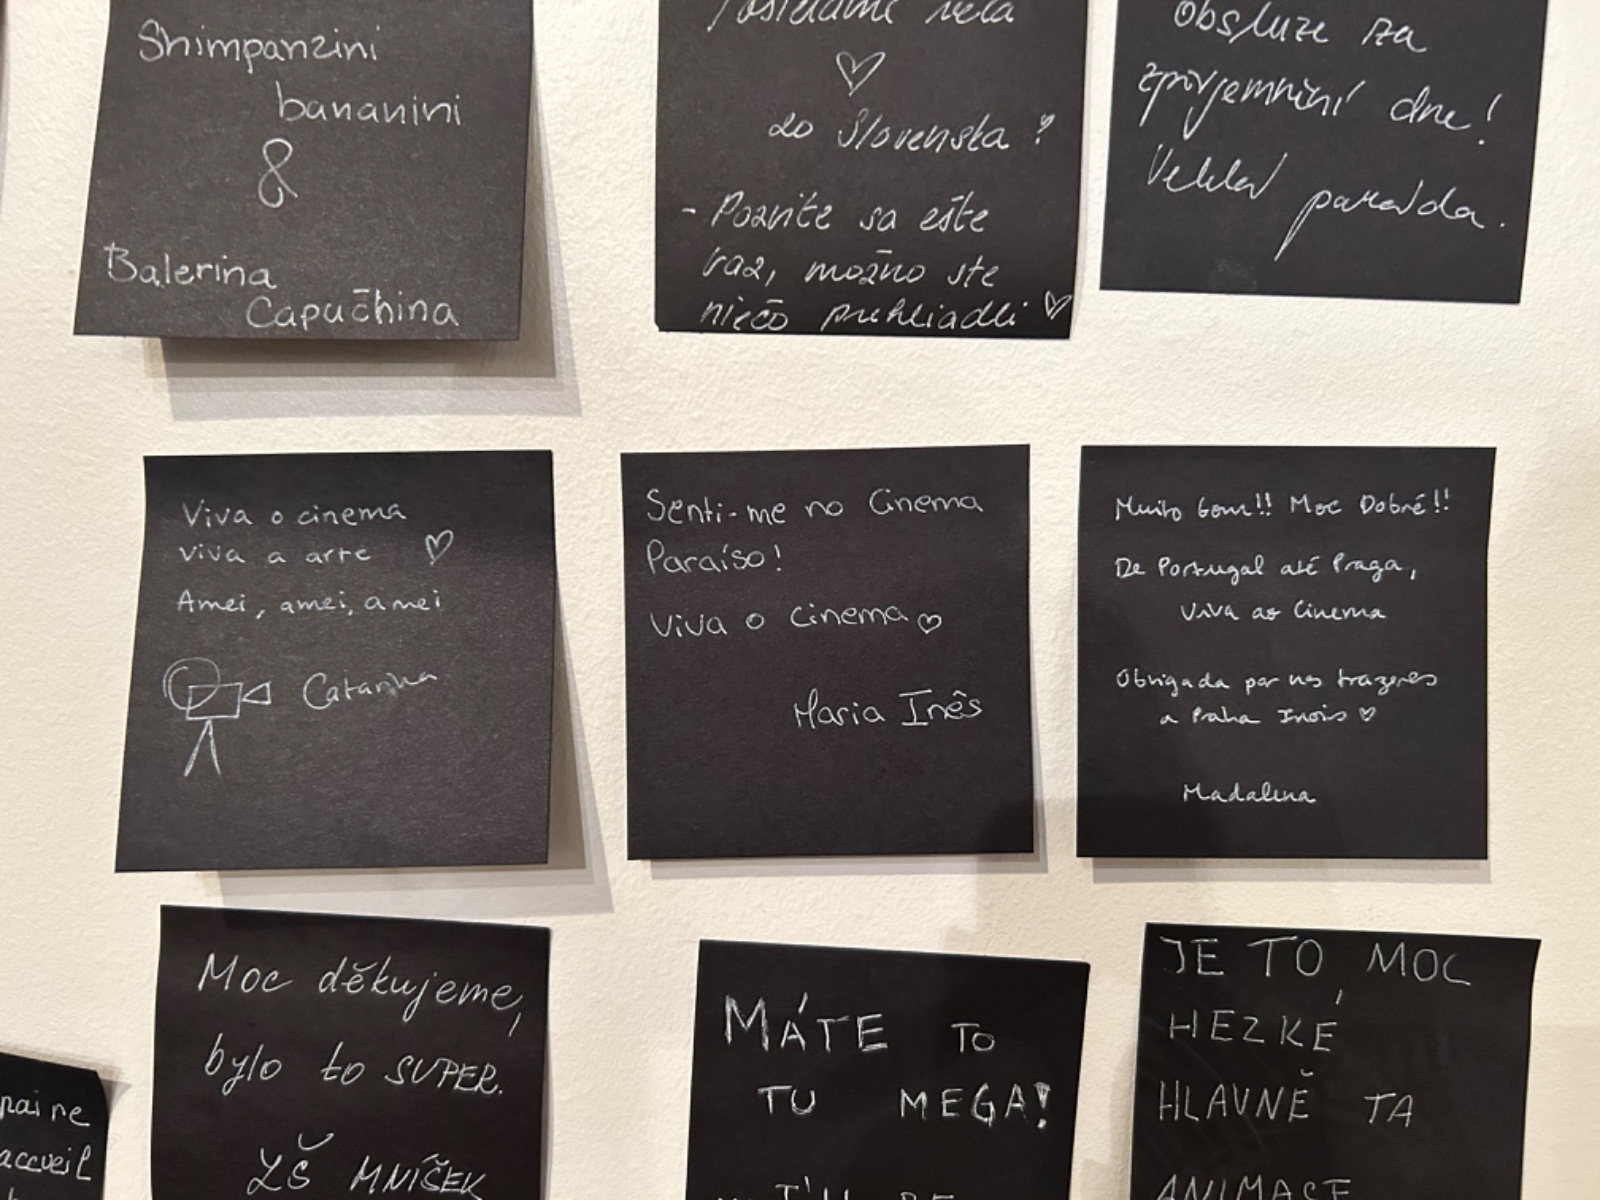 Shimpanzini
bananini
&
Balerina
Capučhina
do Slovenska?
- Pozrite sa ešte
raz, možno ste
niečo prehliadli
Obsluze za
zpříjemnění dne!
Velká paráda.
Viva o cinema
viva a arte
Amei, amei, amei
Catarina
Senti-me no Cinema
Paraíso!
Viva o cinema
Maria Inês
Muito bom!! Moc Dobré!!
De Portugal até Praga,
Viva ao Cinema
Obrigada por nos trazeres
a Praha
Madalena
Moc děkujeme,
bylo to SUPER.
ZŠ MNÍŠEK
MÁTE TO
TU MEGA!
JE TO MOC
HEZKÉ
HLAVNĚ TA
ANIMACE
accueil